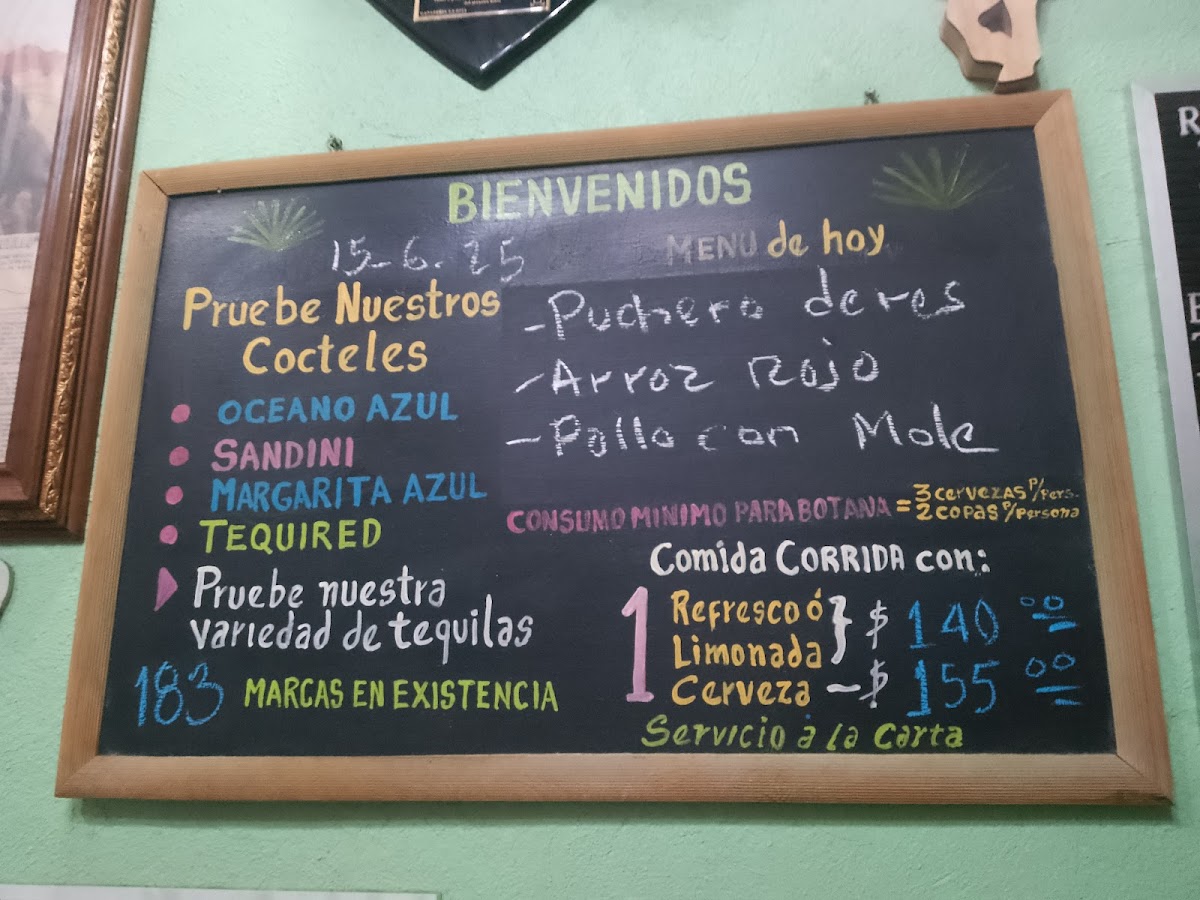 BIENVENIDOS
15-6.25
MENU de hoy
Pruebe Nuestros
Cocteles
OCEANO AZUL
SANDINI
MARGARITA AZUL
TEQUIRED
Pruebe nuestra
variedad de tequilas
183 MARCAS EN EXISTENCIA
-Puchero de res
-Arroz Rojo
-Pollo con Mole
CONSUMO MINIMO PARA BOTANA = 3 CERVEZAS P/Pers.
2 COPAS P/Persona
Comida CORRIDA con:
1 Refresco ó } $ 140 00
Limonada
Cerveza - $ 155 00
Servicio a la Carta